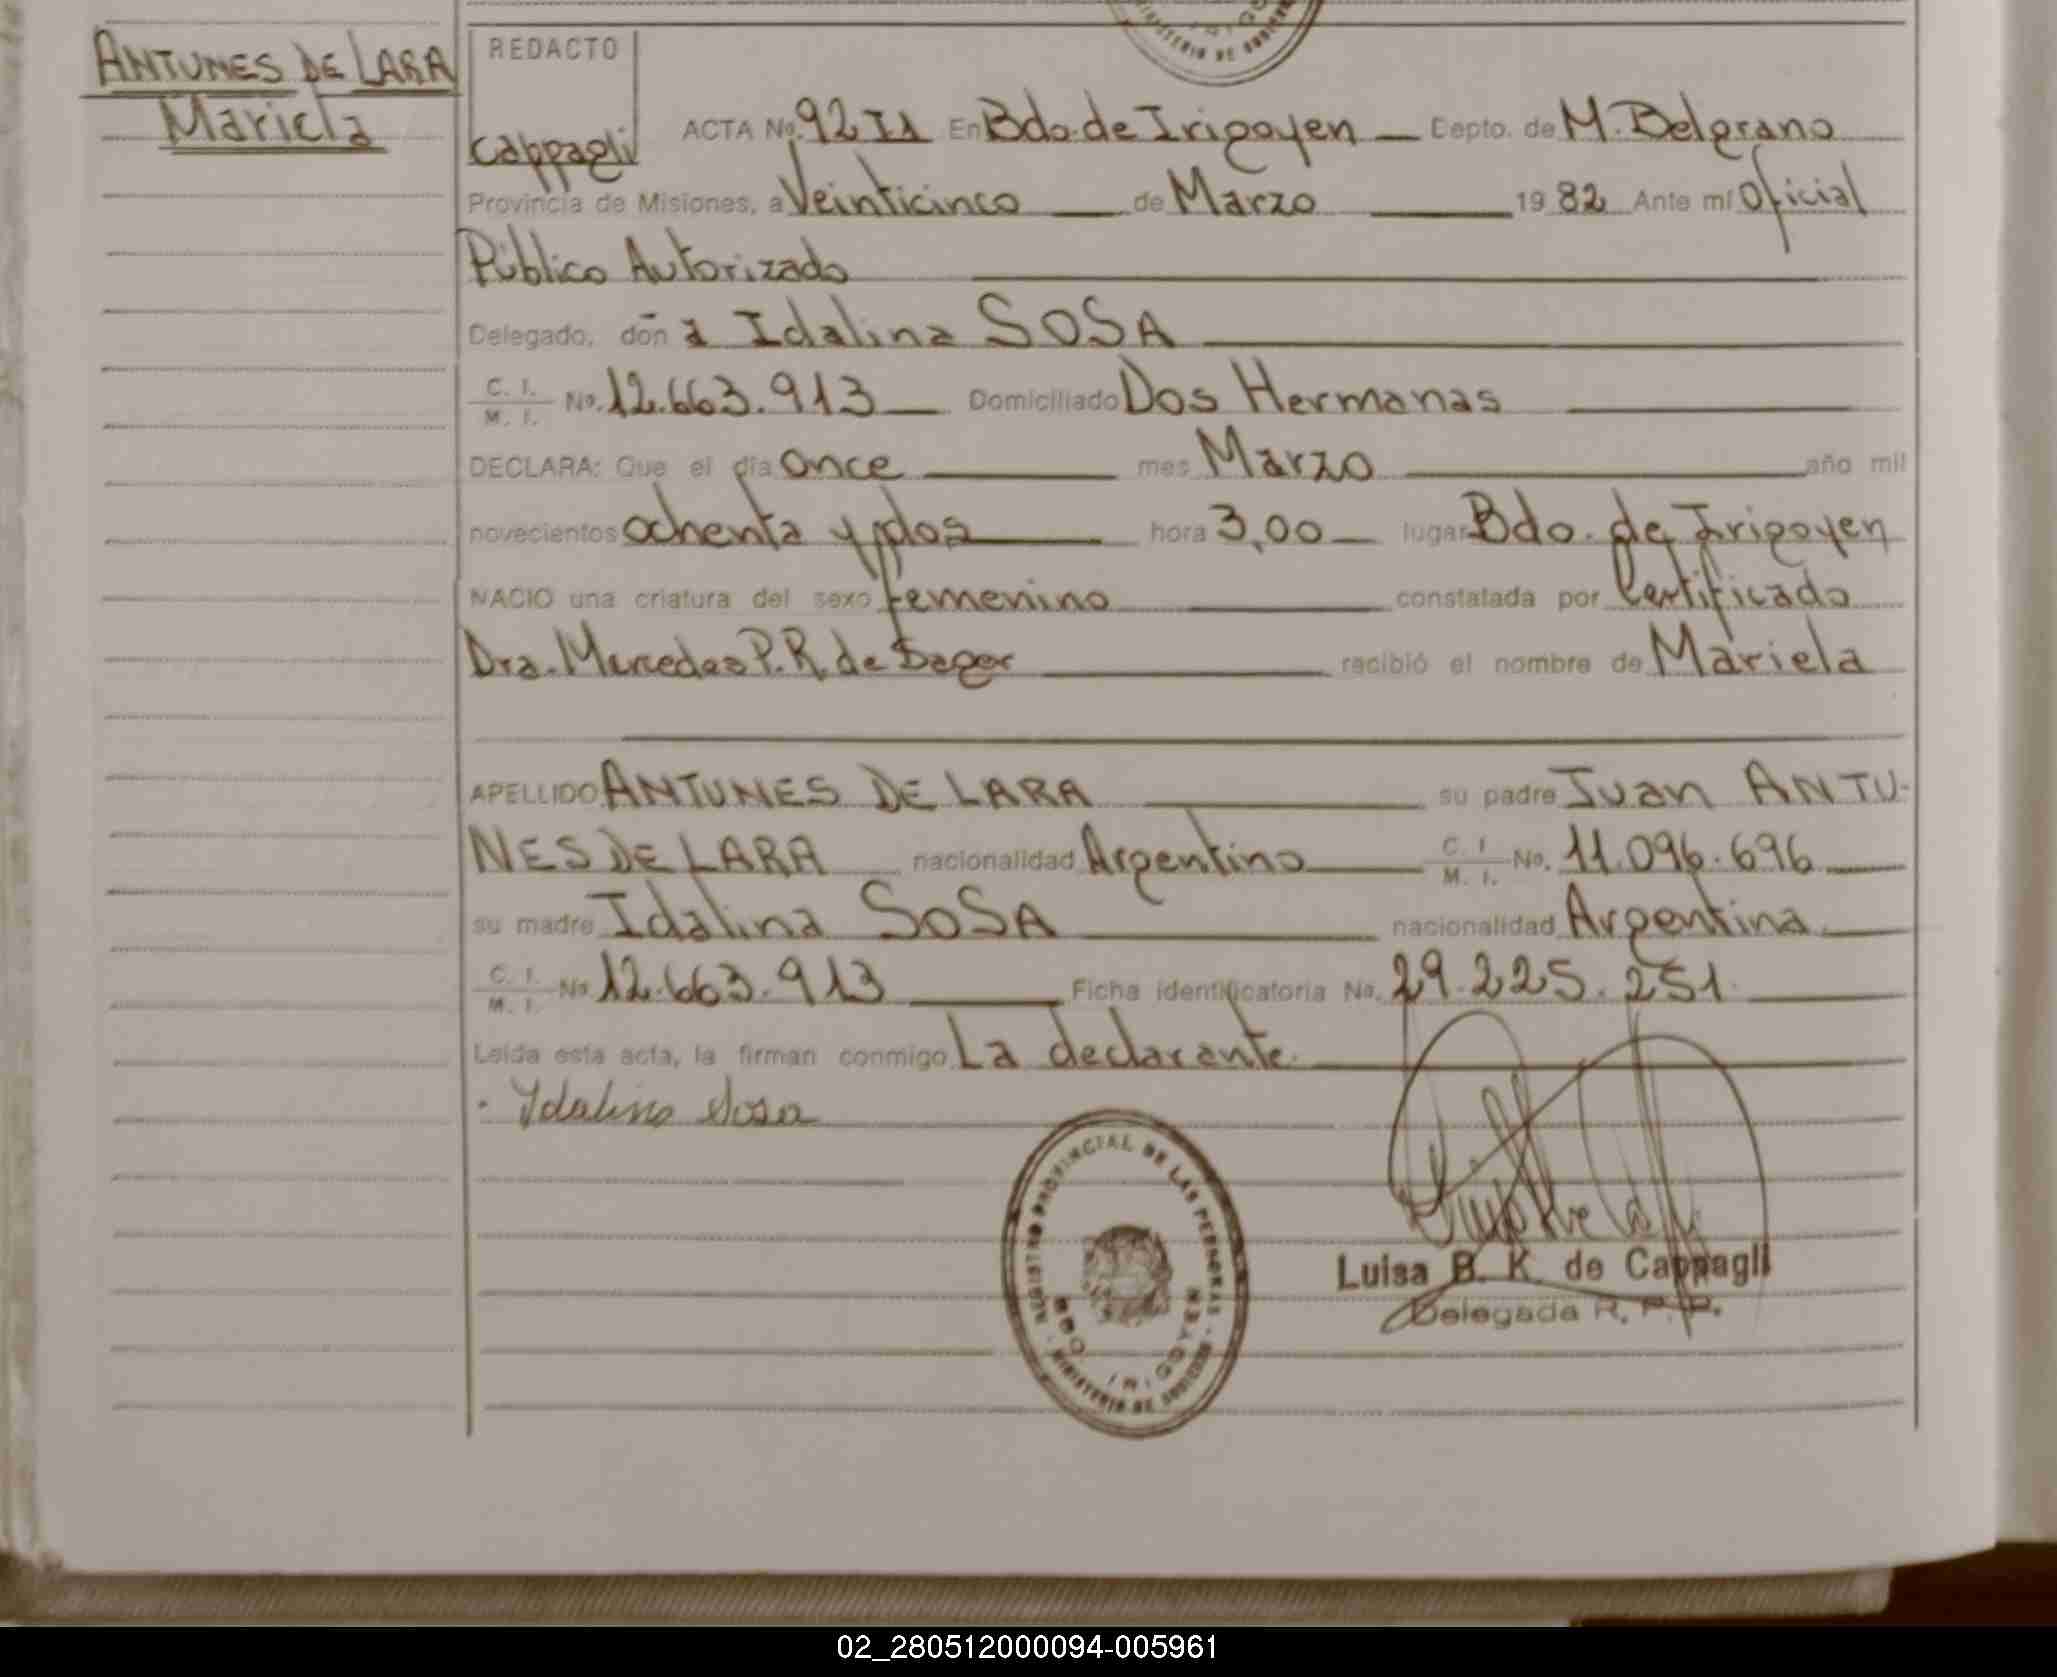 ANTUNES DE LARA
Mariela
REDACTO
Cappagli
ACTA No. 92 I1 En Bdo. de Irigoyen Depto. de M. Belgrano
Provincia de Misiones, a Veinticinco de Marzo 19 82 Ante mí Oficial
Público Autorizado
Delegado, doña Idalina SOSA
C. I. / M. I. No. 12.663.913 Domiciliado Dos Hermanas
DECLARA: Que el día once mes Marzo año mil
novecientos ochenta y dos hora 3,00 lugar Bdo. de Irigoyen
NACIO una criatura del sexo femenino constatada por Certificado
Dra. Mercedes P. R. de recibió el nombre de Mariela
APELLIDO ANTUNES DE LARA su padre Juan ANTU-
NES DE LARA nacionalidad Argentino C. I. / M. I. No. 11.096.696
su madre Idalina SOSA nacionalidad Argentina
C. I. / M. I. No 12.663.913 Ficha identificatoria No. 29.225.251
Leída esta acta, la firman conmigo La declarante.
Ydalina Sosa
REGISTRO PROVINCIAL DE LAS PERSONAS - MINISTERIO DE GOBIERNO
BDO. IRIGOYEN
Luisa B. K. de Cappagli
Delegada R. P. P.
02_280512000094-005961